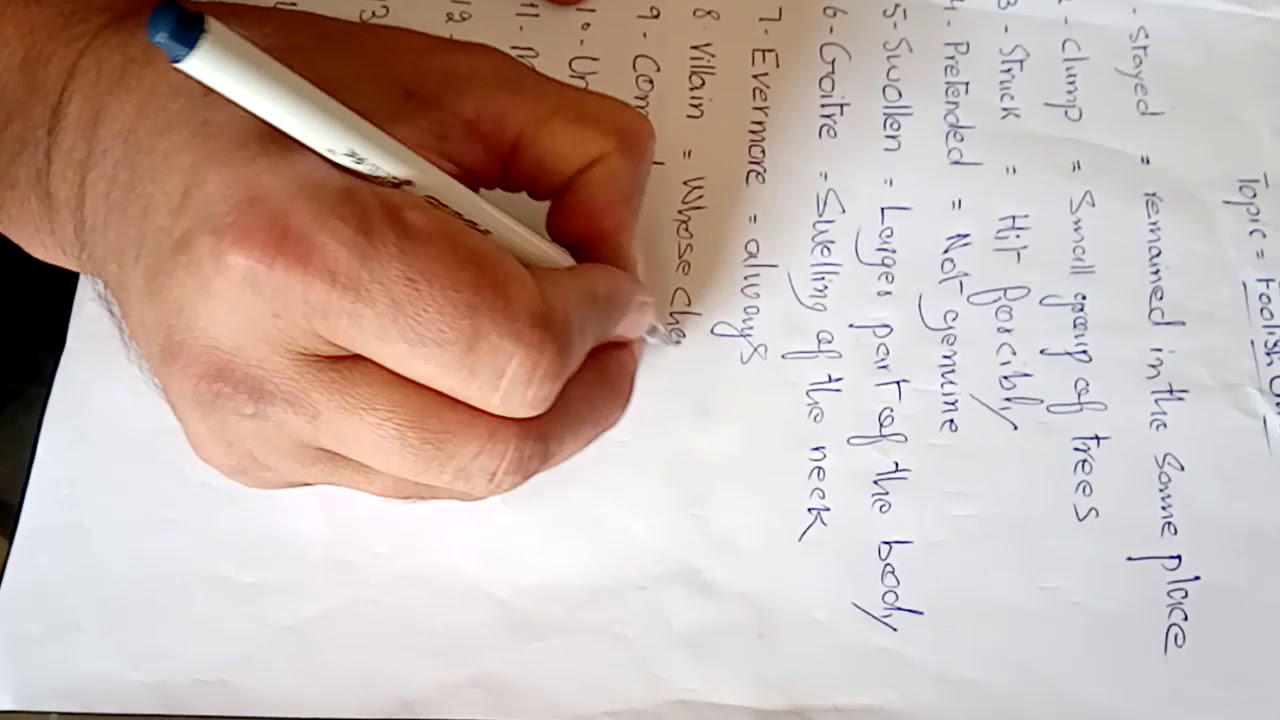 Topic = Foolish
- Stayed = remained in the same place
- clump = Small group of trees
3 - Struck = Hit forcibly
4 - Pretended = Not genuine
5 - Swollen = Larges part of the body
6 - Goitre = Swelling of the neck
7 - Evermore = always
8 Villain = Whose che
9 - Com
10 - Un
11 -
12 -
13